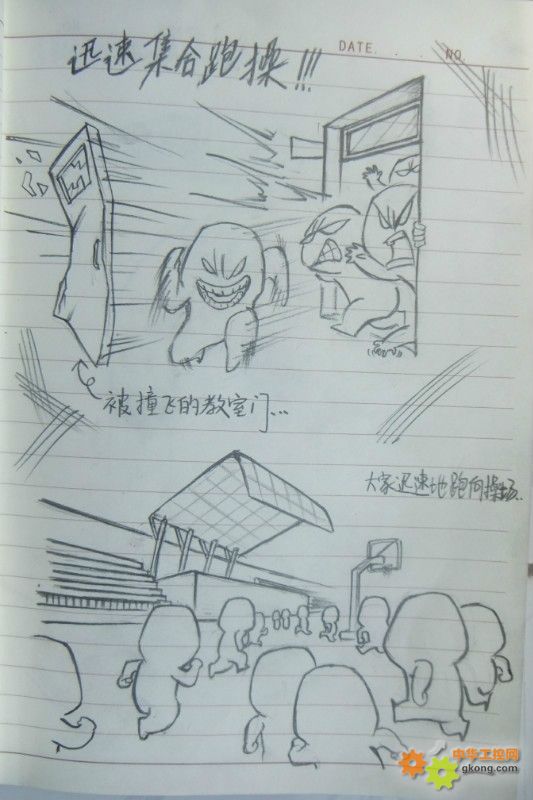 DATE. NO.
迅速集合跑操!!!
被撞飞的教室门...
大家迅速地跑向操场.
中华工控网
gkong.com